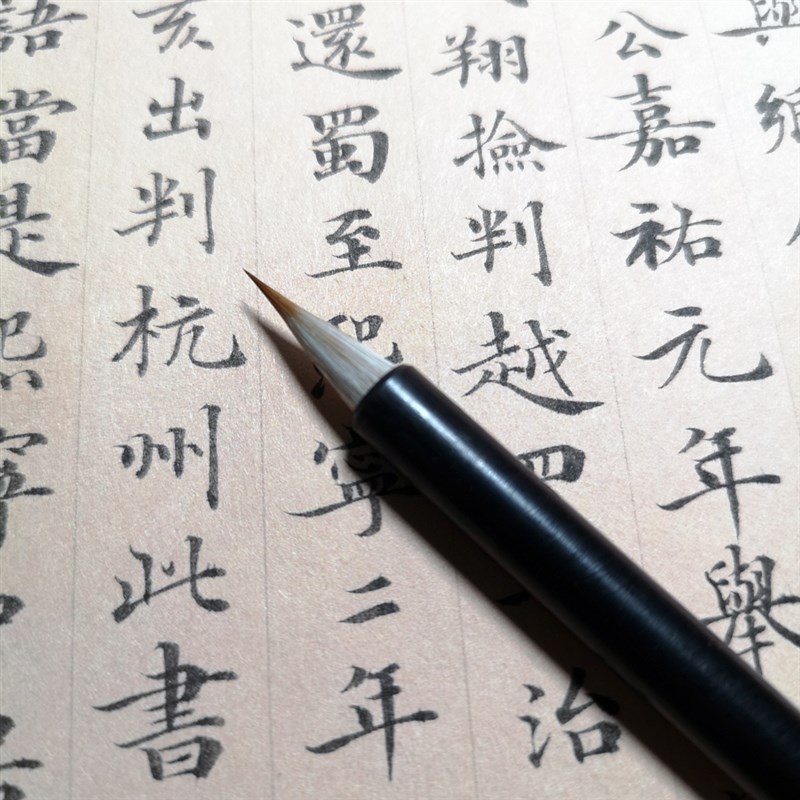 公嘉祐元年舉
翔撿判越四治
還蜀至熙寧二年
亥出判杭州此書
語當是熙寧